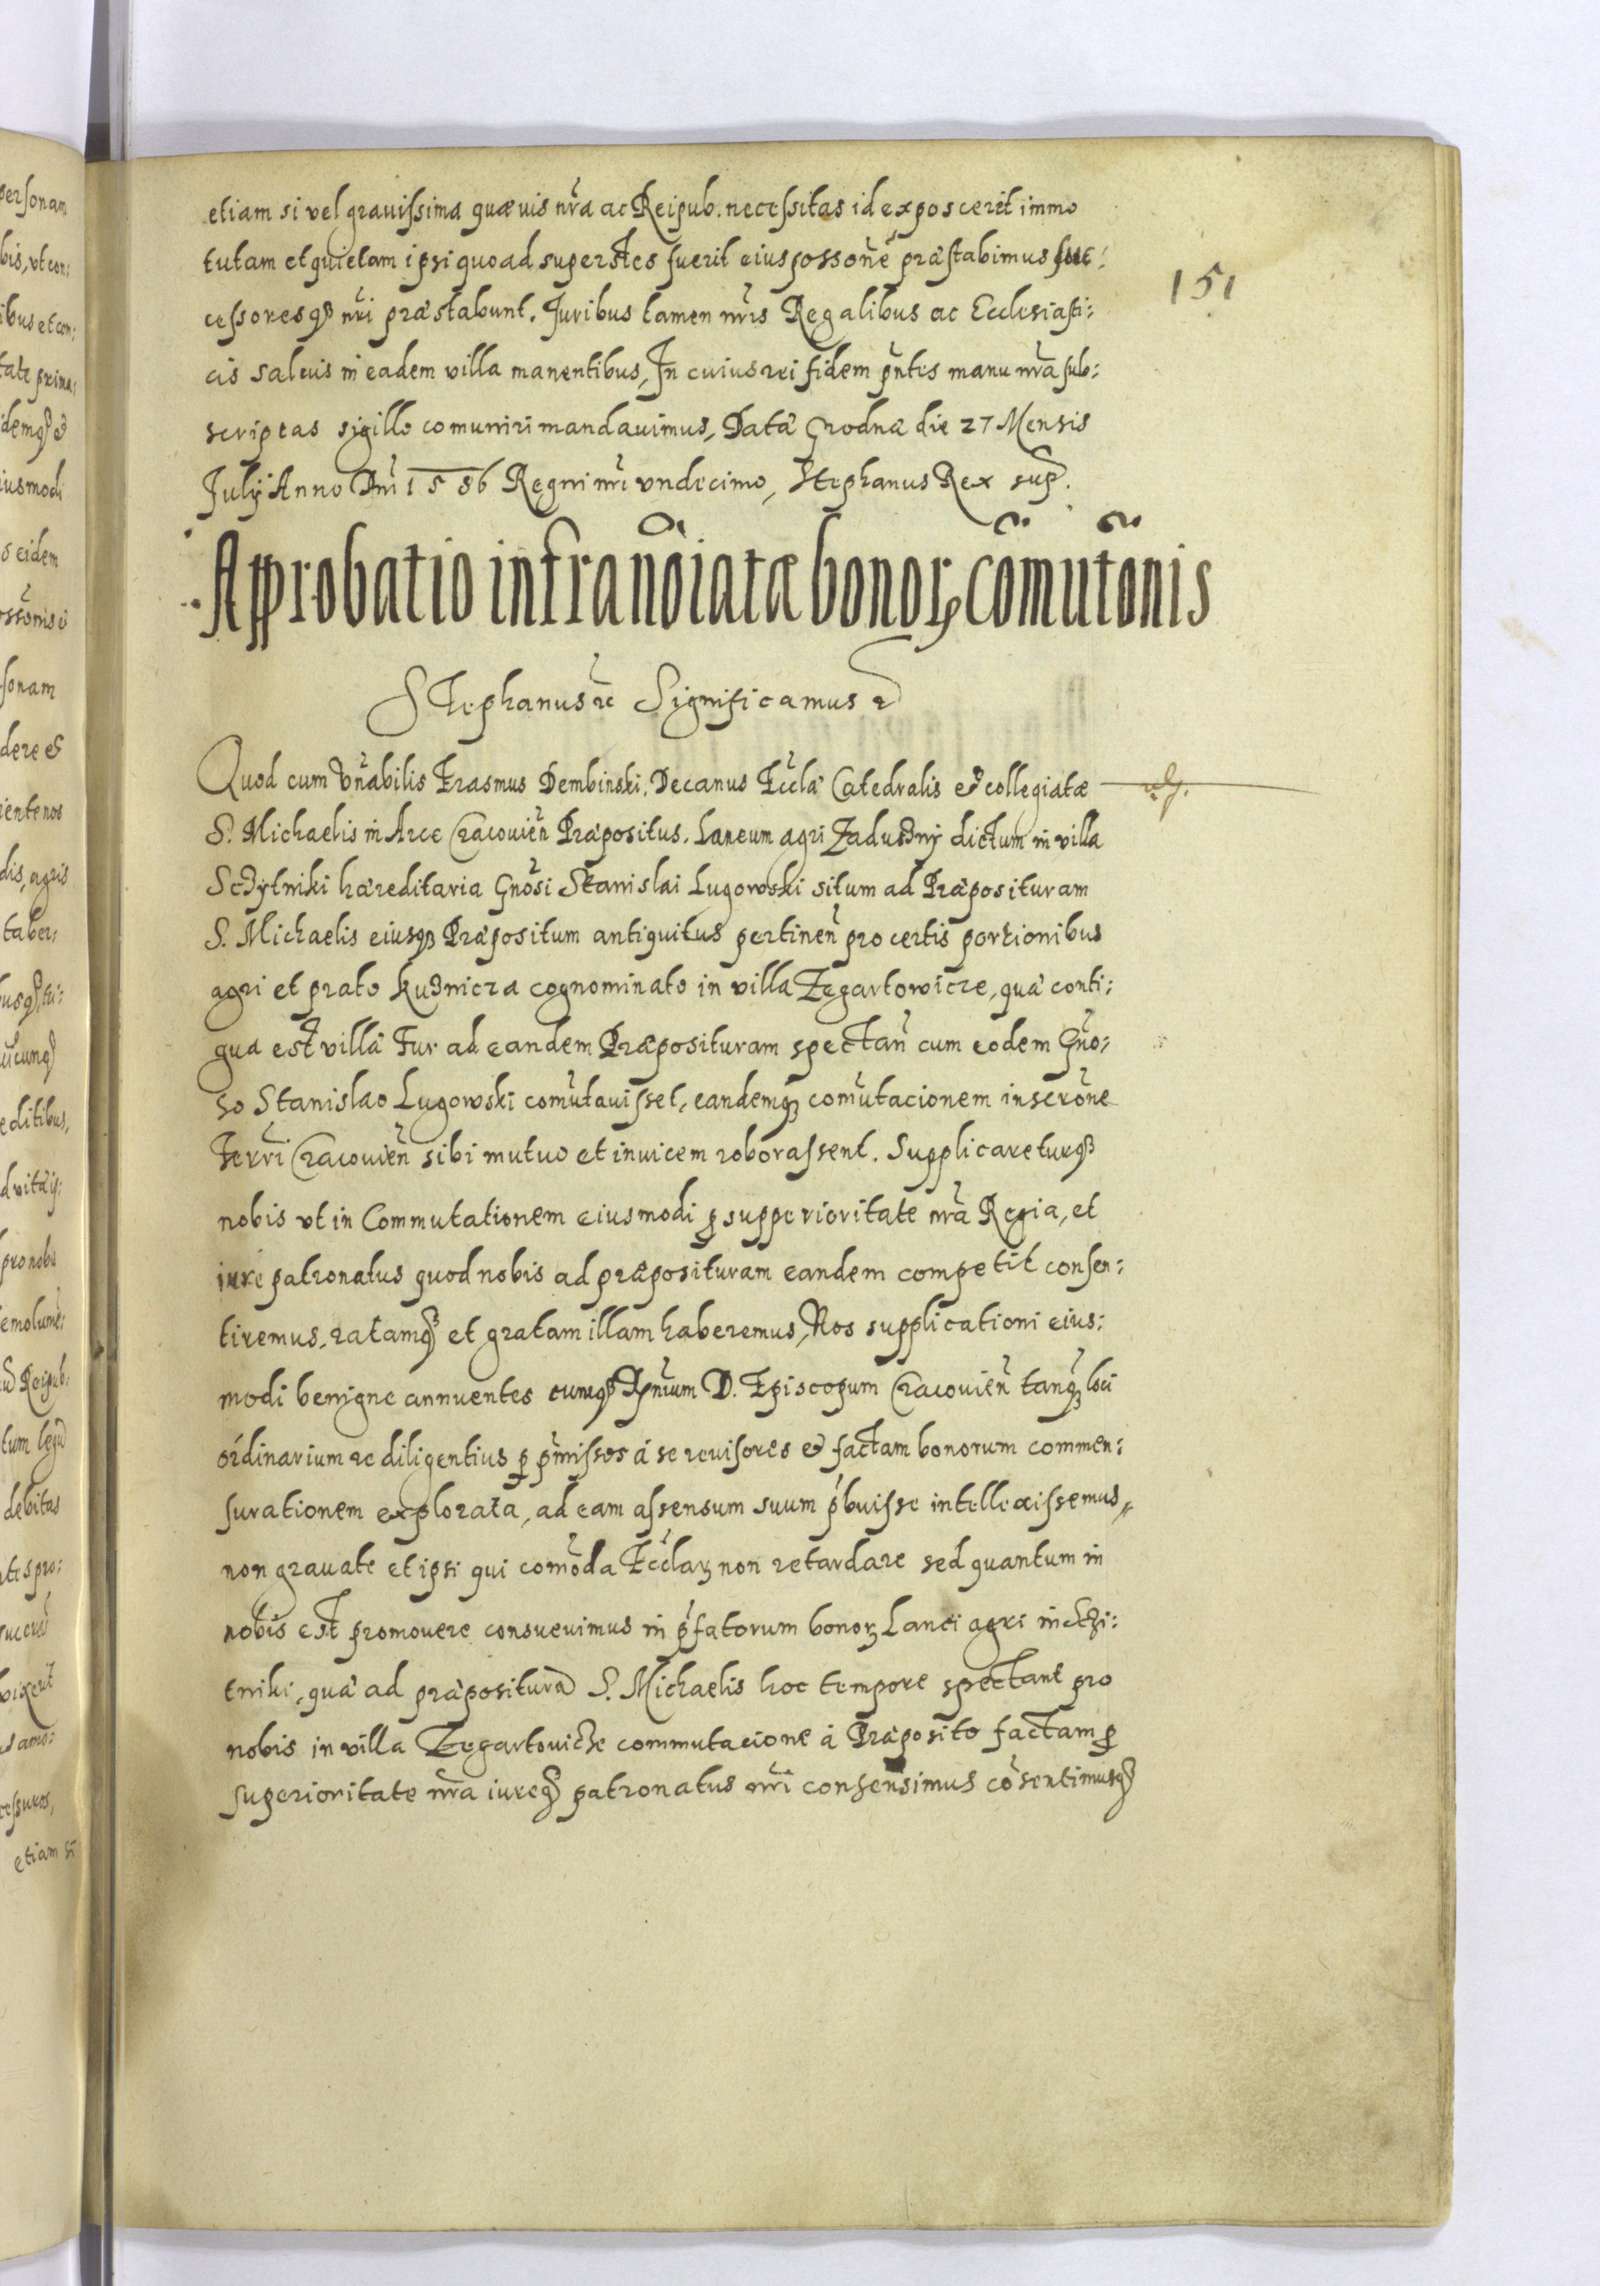 etiam si vel grauissima quæuis nr̃a ac Reipub. necessitas id exposcerit immo
tutam et quietam ipsi quoad superstes fuerit eius possoñe præstabimus suc:
cessoresq₃ nr̃i præstabunt. Iuribus tamen nr̃is Regalibus ac Ecclesiasti:
cis saluis in eadem villa manentibus, In cuius rei fidem pn̄tes manu nr̃a sub:
scriptas sigillo comuniri mandauimus, Datæ Grodnæ die 27 Mensis
July Anno Dn̄i 1586 Regni nr̃i vndecimo, Stephanus Rex sup̃.
151
Approbatio infran̄oiatæ bonoꝝ com̄utōnis
Stephanus ꝛc Significamus ꝛ
Quod cum Vn̄abilis Erasmus Dembinski. Decanus Eccl̃æ Catedralis et collegiatæ
S. Michaelis in Arce Cracouien̄ Præpositus. Laneum agri Zadusʒnj dictum in villa
Scʒytniki hæreditaria Gn̄osi Stanislai Lugowski situm ad Præposituram
S. Michaelis eiusq₃ Præpositum antiquitus pertinen̄ pro certis portionibus
agri et prato kuʒnicza cognominato in villa Zegartowicze, quæ conti:
gua est villæ Fur ad eandem Præposituram spectan̄ cum eodem Gn̄o:
so Stanislao Lugowski com̄utauisset, eandemq₃ com̄utacionem inscrōne
Terr̃i Cracouien̄ sibi mutuo et inuicem roborassent. Supplicareturq₃
nobis vt in Commutationem eiusmodi ꝑ supperioritate nr̃a Regia, et
iure patronatus quod nobis ad præposituram eandem competit consen:
tiremus, ratamq₃ et gratam illam haberemus, Nos supplicationi eius:
modi benigne annuentes cumq₃ D. Episcopum Cracouien̄ tanq₃ loci
ordinarium re diligentius ꝑ pm̄issos á se reuisores et factam bonorum commen:
surationem explorata, ad eam assensum suum p̃buisse intellexissemus,
non grauate et ipsi qui com̄oda Eccl̃aꝝ non retardare sed quantum in
nobis est promouere consueuimus in p̃fatorum bonoꝝ Lanei agri in
tniki, quæ ad præposituram S. Michaelis hoc tempore spectant pro
nobis in villa Zegartouicʒe commutacione á Præposito factam ꝑ
superioritate nr̃a iureq₃ patronatus nr̃i consensimus cōsentimusq₃